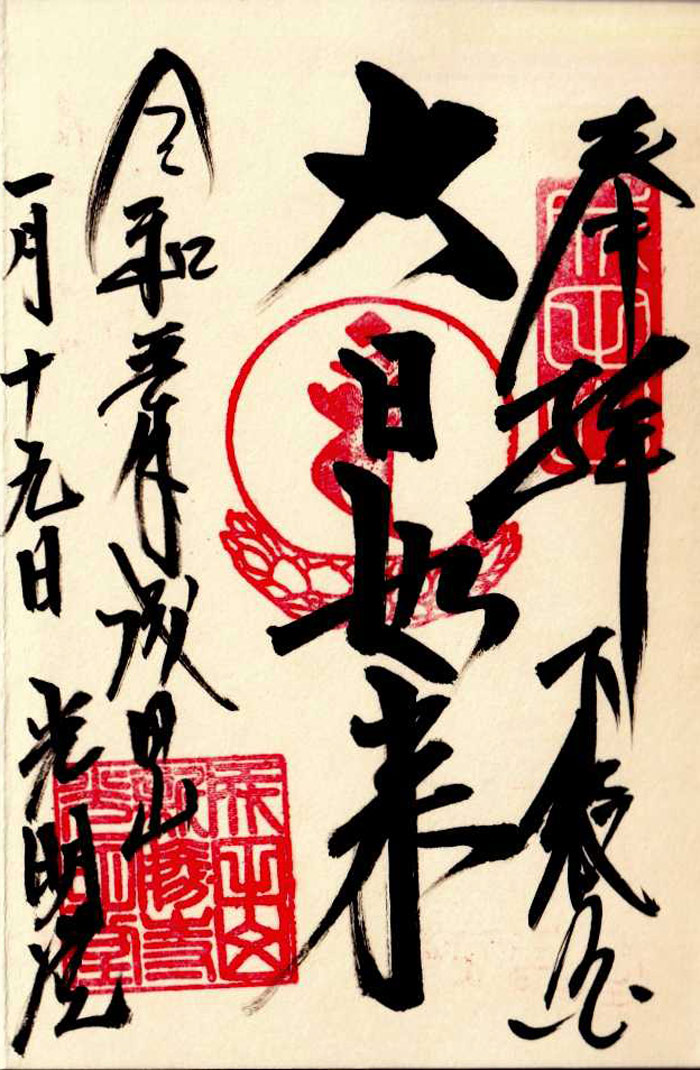 奉拝 下総
大日如来
令和年 成田山
一月十九日 光明堂
成田山
成田山
新勝寺
光明堂